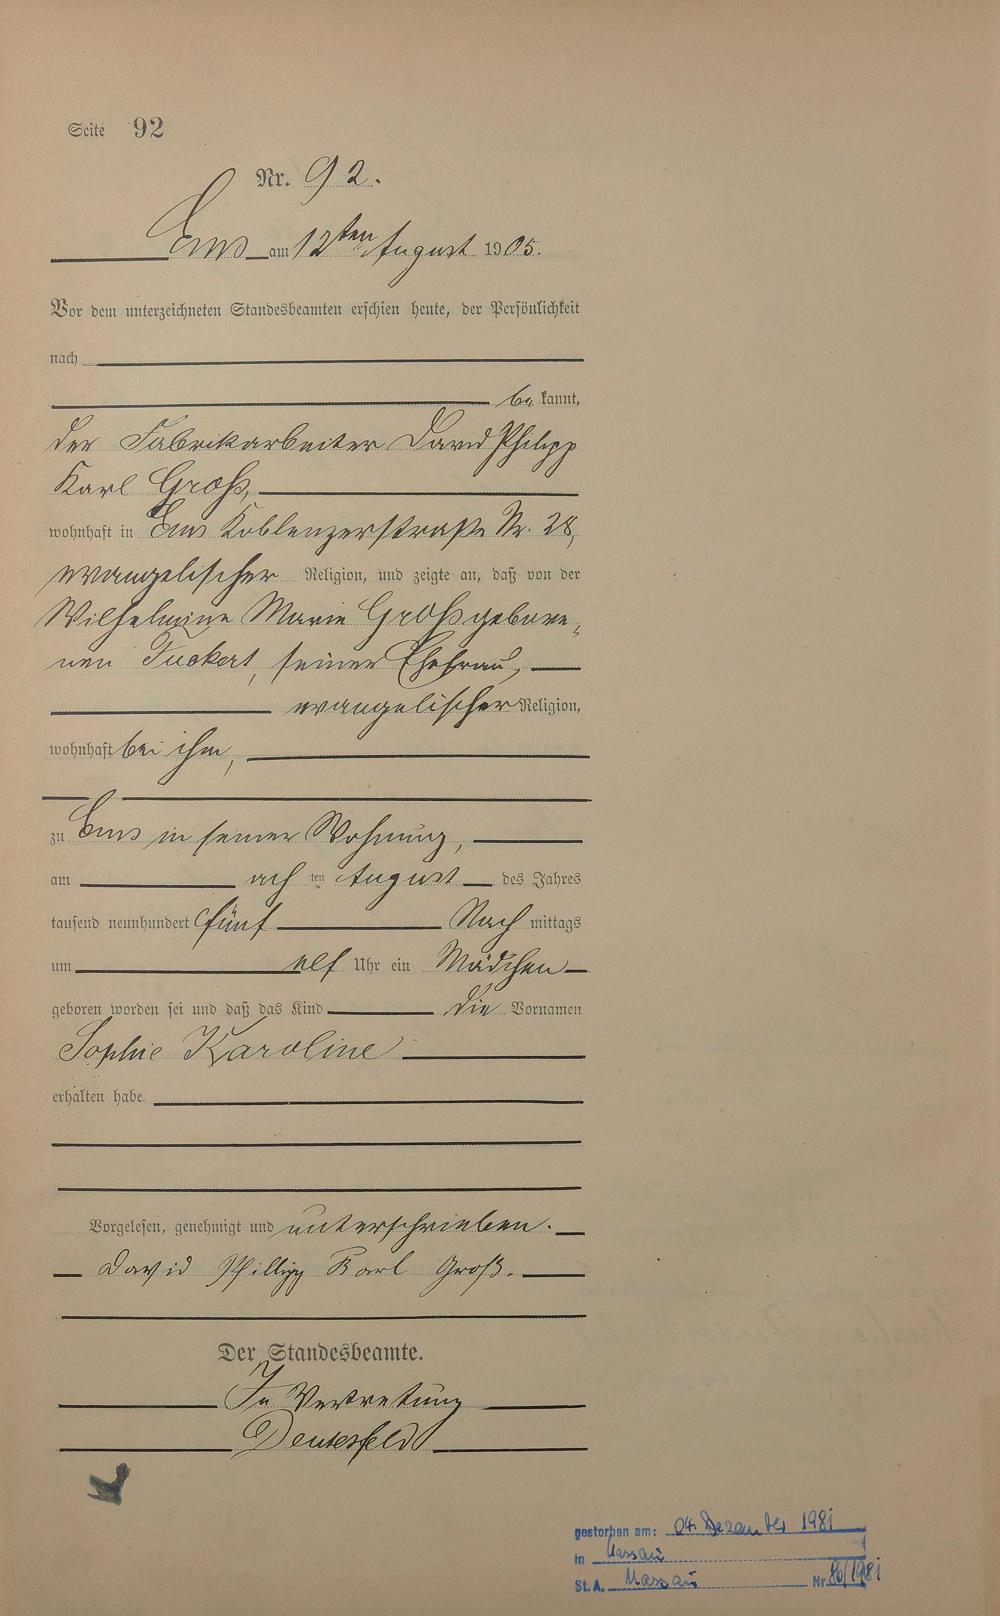 Seite 92
Nr. 92.
Ems am 12ten August 1905.
Vor dem unterzeichneten Standesbeamten erschien heute, der Persönlichkeit
nach
bekannt,
der Fabrikarbeiter David Philipp
Karl Groß,
wohnhaft in Ems Koblenzerstraße Nr. 28,
evangelischer Religion, und zeigte an, daß von der
Wilhelmine Marie Groß gebore-
nen Tuckert, seiner Ehefrau,
evangelischer Religion,
wohnhaft bei ihm,
zu Ems in seiner Wohnung,
am achten August des Jahres
tausend neunhundert fünf Nachmittags
um elf Uhr ein Mädchen
geboren worden sei und daß das Kind die Vornamen
Sophie Karoline
erhalten habe.
Vorgelesen, genehmigt und unterschrieben.
David Phillipp Karl Groß.
Der Standesbeamte.
In Vertretung
gestorben am: 04. Dezember 1981
in Nassau
St. A. Nassau Nr. 86/1981